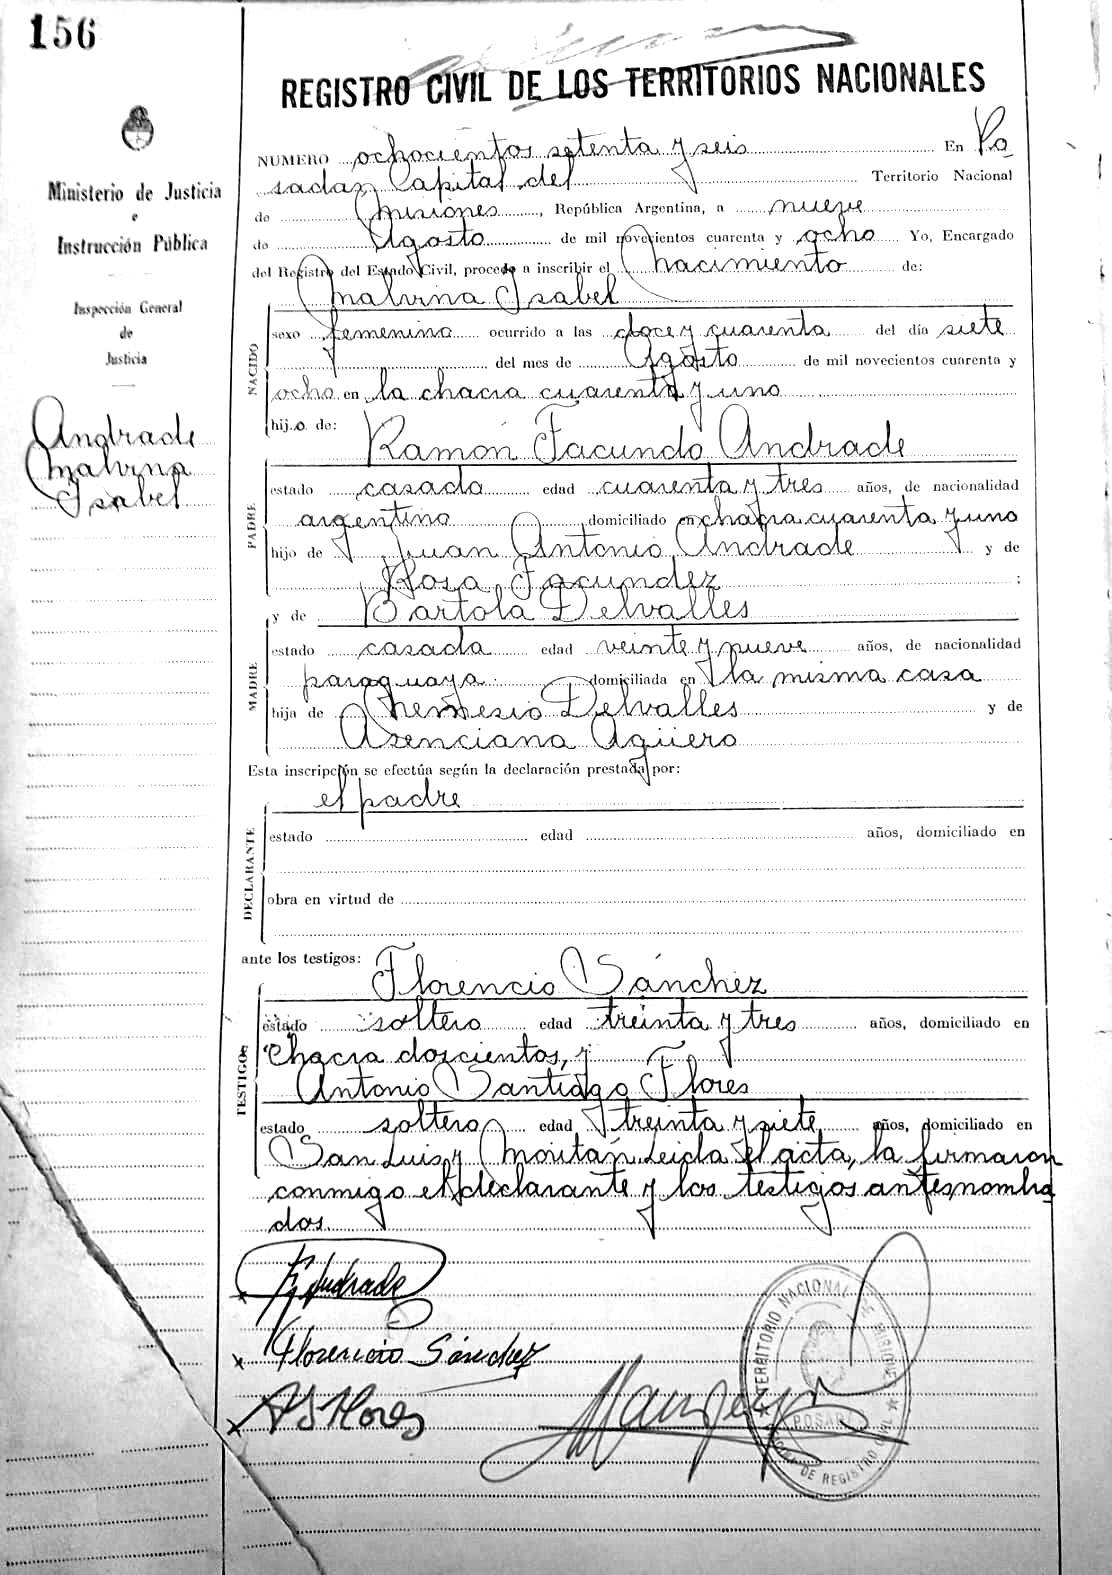 156
REGISTRO CIVIL DE LOS TERRITORIOS NACIONALES
Ministerio de Justicia
e
Instrucción Pública
Inspección General
de
Justicia
Andrade
Malvina
Isabel
NUMERO ochocientos setenta y seis En Po
sadas, Capital del Territorio Nacional
de Misiones, República Argentina, a nueve
de Agosto de mil novecientos cuarenta y ocho Yo, Encargado
del Registro del Estado Civil, procedo a inscribir el Nacimiento de:
Malvina Isabel
NACIDO
sexo femenino ocurrido a las doce y cuarenta del día siete
del mes de Agosto de mil novecientos cuarenta y
ocho en la chacra cuarenta y uno
hij.o de:
Ramón Facundo Andrade
PADRE
estado casado edad cuarenta y tres años, de nacionalidad
argentino domiciliado en chacra cuarenta y uno
hijo de Juan Antonio Andrade y de
Rosa Facundez ;
y de Bartola Delvalles
MADRE
estado casada edad veinte y nueve años, de nacionalidad
paraguaya domiciliada en la misma casa
hija de Nemesio Delvalles y de
Asenciana Agüero
Esta inscripción se efectúa según la declaración prestada por:
el padre
DECLARANTE
estado edad años, domiciliado en
obra en virtud de
ante los testigos:
Florencio Sánchez
TESTIGOS
estado soltero edad treinta y tres años, domiciliado en
Chacra doscientos, y
Antonio Santiago Flores
estado soltero edad treinta y siete años, domiciliado en
San Luis y Moritán. Leida el acta, la firmaron
conmigo el declarante y los testigos antesnombra
dos.
x Andrade
x Florencio Sánchez
x A S Flores
TERRITORIO NACIONAL DE MISIONES
POSADAS
DE REGISTRO CIVIL